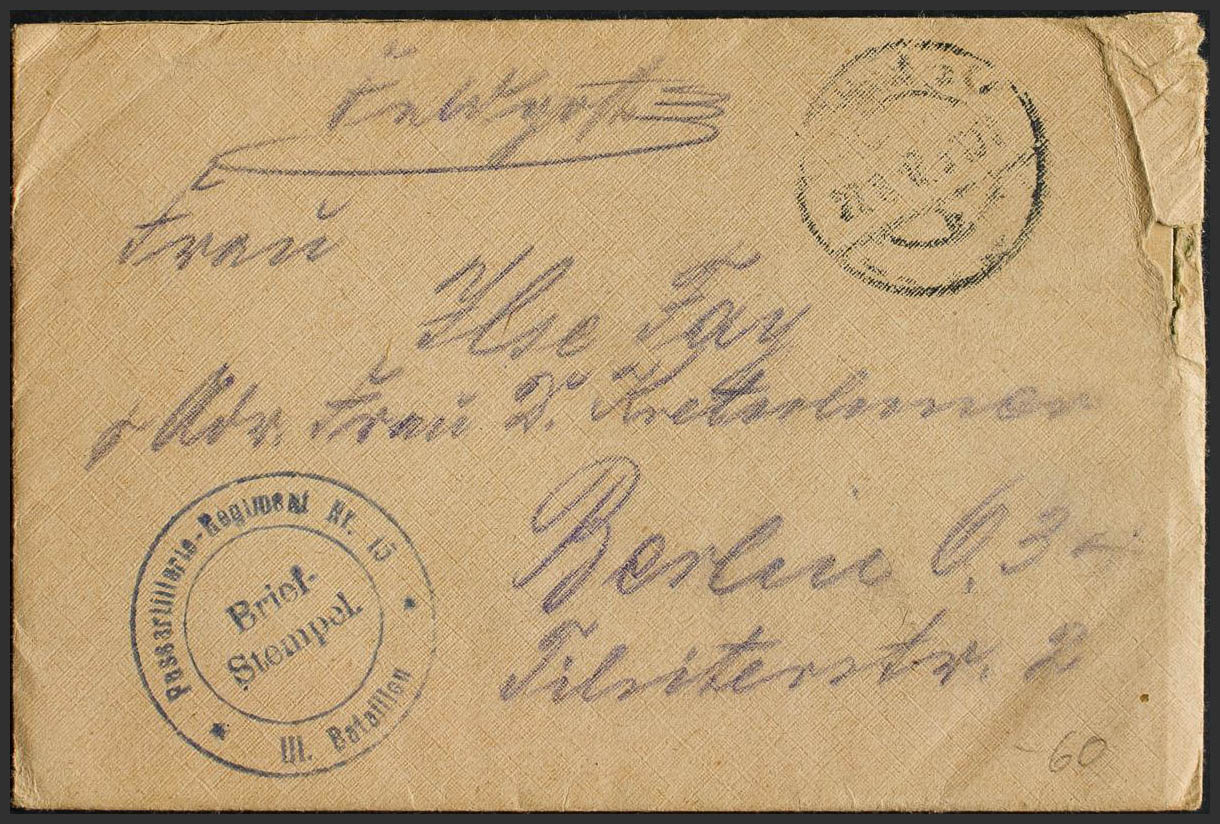 Feldpost
Frau
Ilse Fay
Adr. Frau Dr. Kretschmer
Berlin O. 34
Tilsiterstr. 2
Fussartillerie-Regiment Nr. 15
Brief-
Stempel.
III. Bataillon
-60